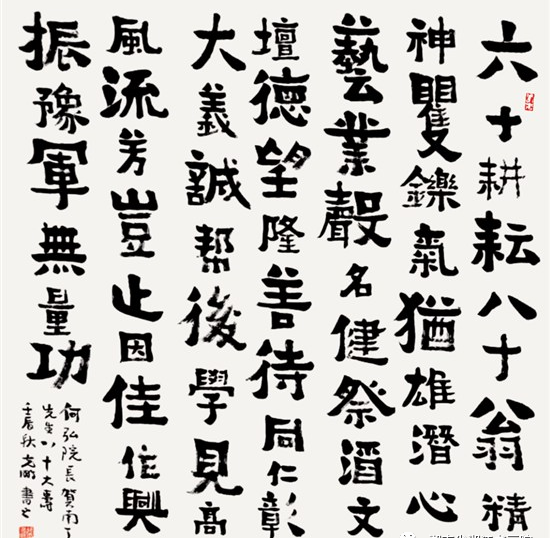 六十耕耘八十翁精
神矍鑠氣猶雄潛心
藝業聲名健祭酒文
壇德望隆善待同仁彰
大義誠幫後學見高
風流芳豈止因佳作興
振豫軍無量功
何弘院長賀南丁
先生八十大壽
壬辰秋書